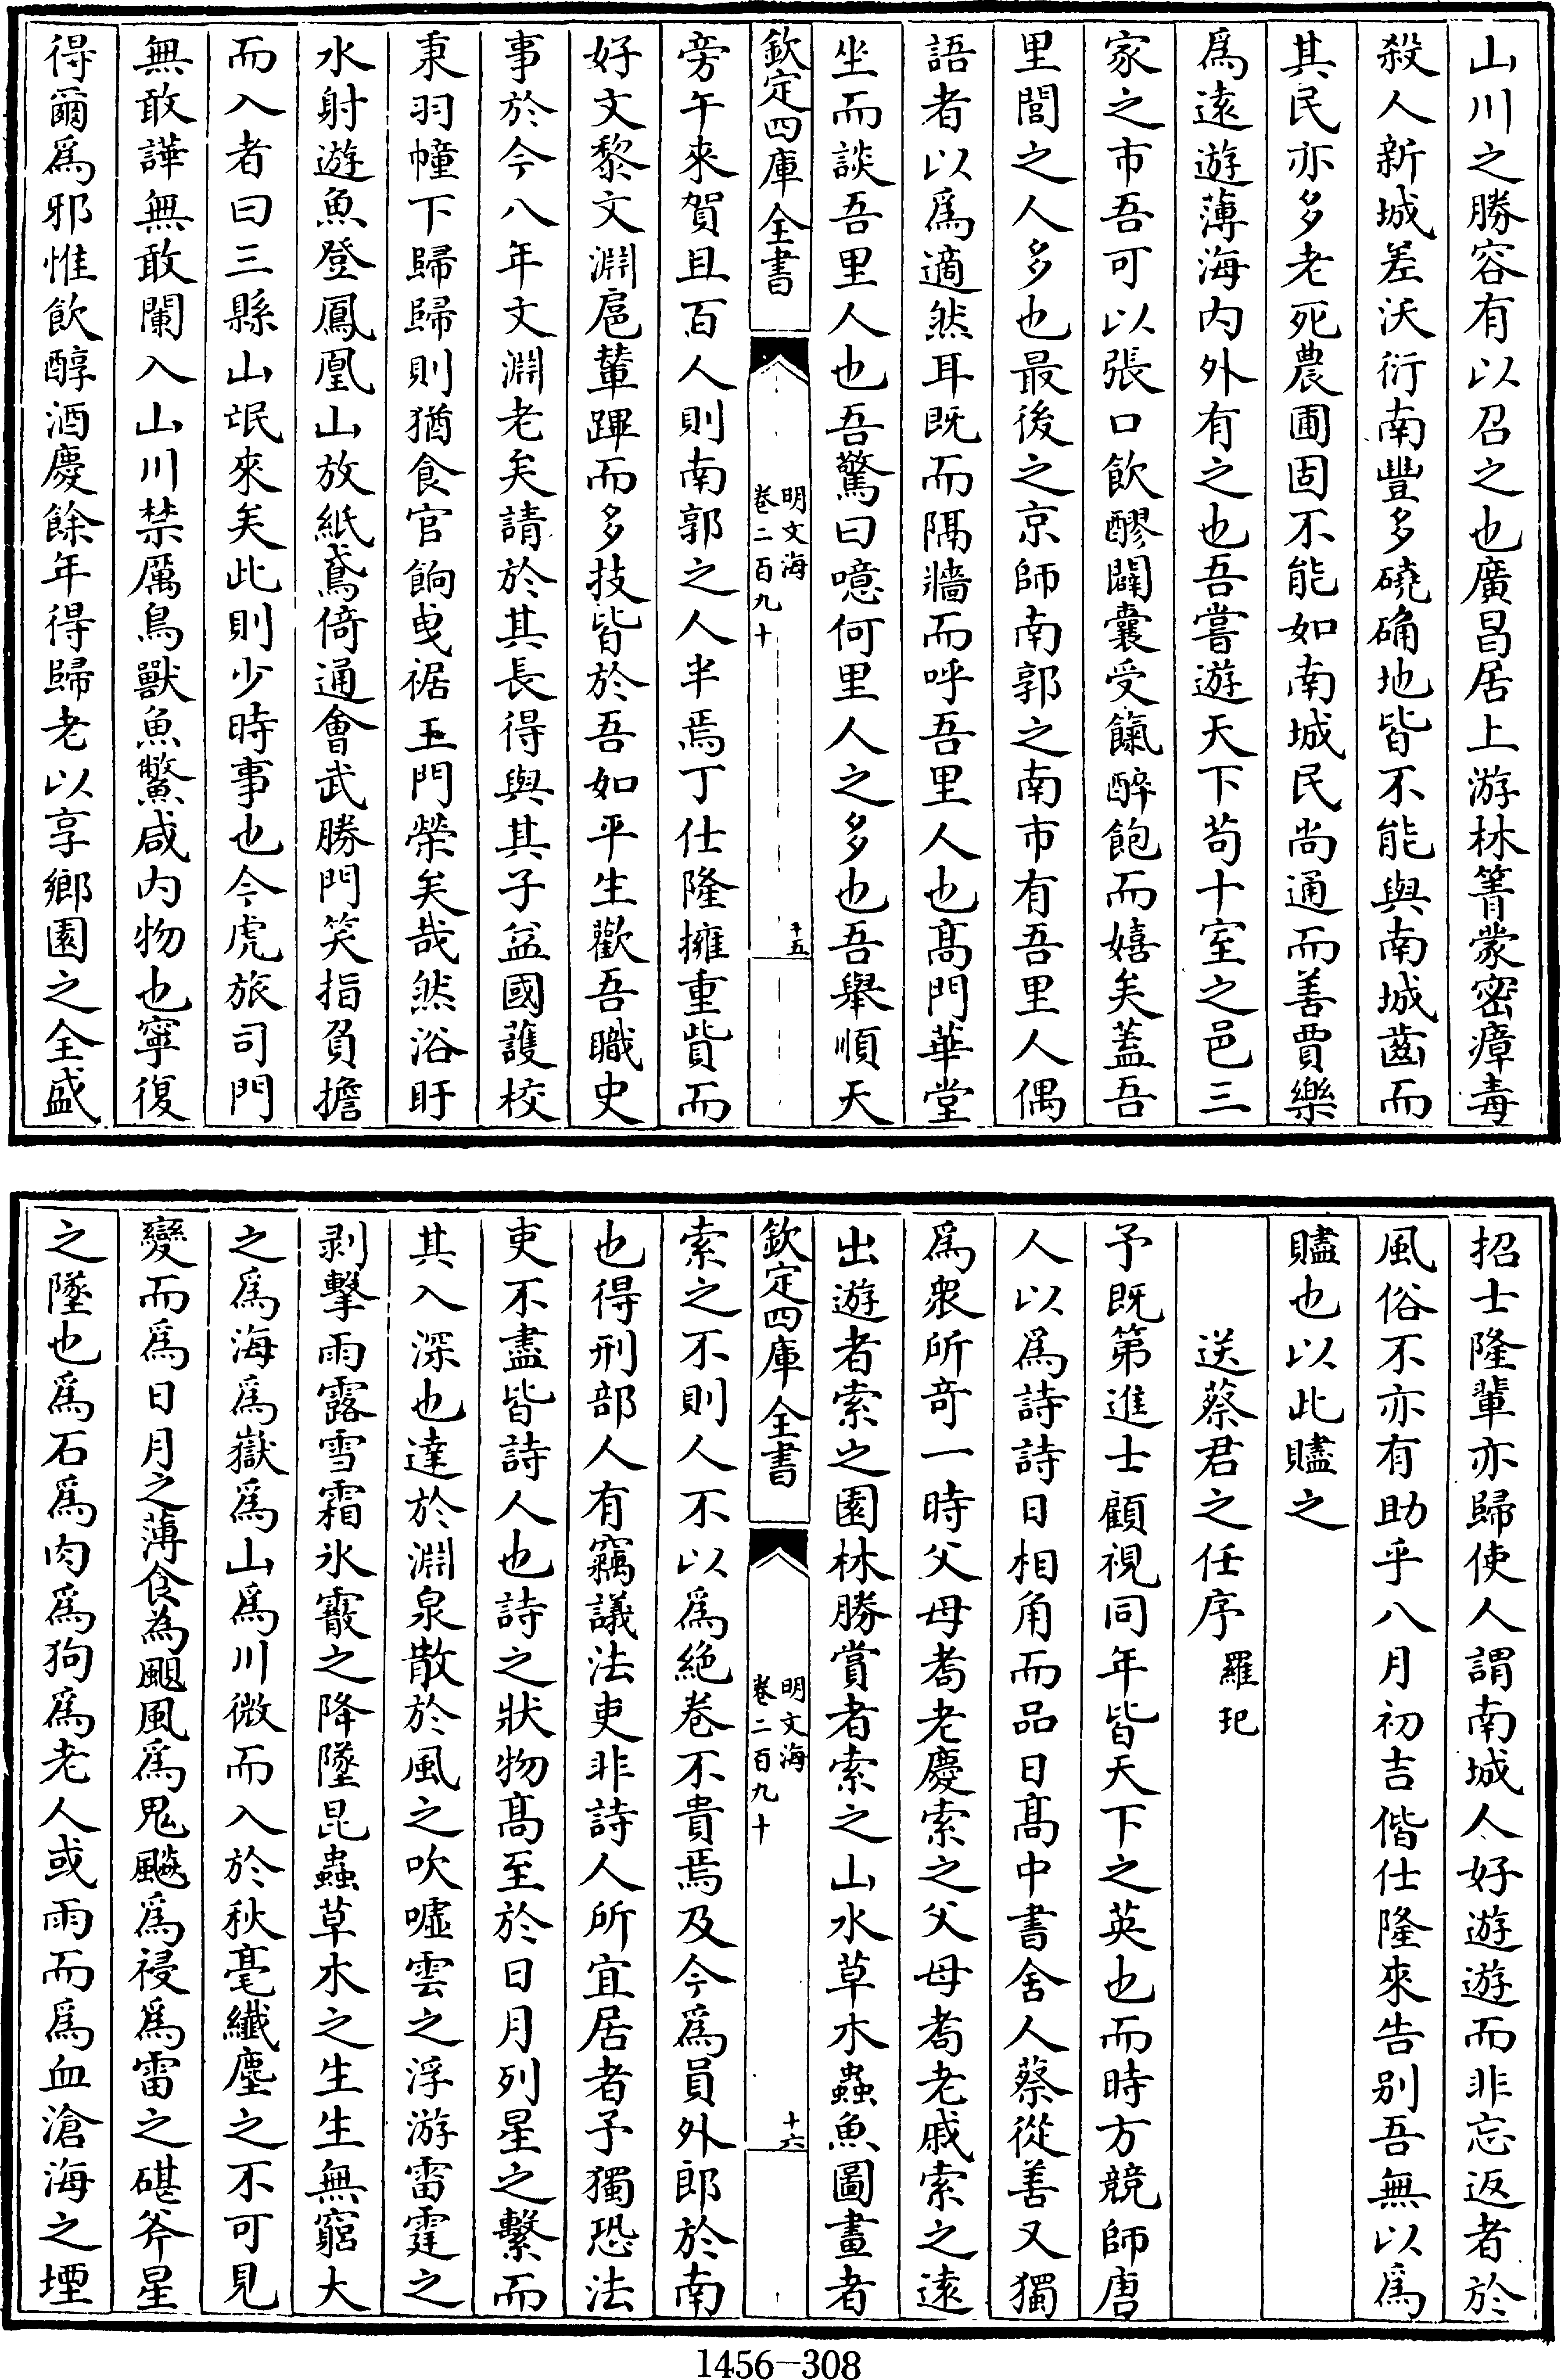 山川之勝容有以召之也廣昌居上游林箐蒙密瘴毒
殺人新城差沃衍南豐多磽确地皆不能與南城齒而
其民亦多老死農圃固不能如南城民尚通而善賈樂
爲遠遊薄海内外有之也吾嘗遊天下苟十室之邑三
家之市吾可以張口飲醪闢囊受餼醉飽而嬉矣蓋吾
里閭之人多也最後之京師南郭之南市有吾里人偶
語者以爲適然耳既而隔牆而呼吾里人也髙門華堂
坐而談吾里人也吾驚曰噫何里人之多也吾舉順天
欽定四庫全書
明文海
卷二百九十
十五
旁午來賀且百人則南郭之人半焉丁仕隆擁重貲而
好文黎文淵扈輦蹕而多技皆於吾如平生歡吾職史
事於今八年文淵老矣請於其長得與其子盆國護校
秉羽幢下歸歸則猶食官餉曳裾玉門榮矣哉然浴盱
水射遊魚登鳳凰山放紙鳶倚通會武勝門笑指負擔
而入者曰三縣山氓來矣此則少時事也今虎旅司門
無敢譁無敢闌入山川禁厲鳥獸魚鱉咸内物也寧復
得爾爲邪惟飲醇酒慶餘年得歸老以享鄉園之全盛
招士隆輩亦歸使人謂南城人好遊遊而非忘返者於
風俗不亦有助乎八月初吉偕仕隆來告别吾無以爲
贐也以此贐之
送蔡君之任序 羅玘
予既第進士顧視同年皆天下之英也而時方競師唐
人以爲詩詩日相角而品日髙中書舍人蔡從善又獨
爲衆所竒一時父母耈老慶索之父母耈老戚索之遠
出遊者索之園林勝賞者索之山水草木蟲魚圖畫者
欽定四庫全書
明文海
卷二百九十
十六
索之不則人不以爲絶卷不貴焉及今爲員外郎於南
也得刑部人有竊議法吏非詩人所宜居者予獨恐法
吏不盡皆詩人也詩之狀物髙至於日月列星之繫而
其入深也達於淵泉散於風之吹噓雲之浮游雷霆之
剥擊雨露雪霜氷霰之降墜昆蟲草木之生生無窮大
之爲海爲嶽爲山爲川微而入於秋毫纖塵之不可見
變而爲日月之薄食為颶風爲鬼飈爲祲爲雷之碪斧星
之墜也爲石爲肉爲狗爲老人或雨而爲血滄海之堙
1456-308